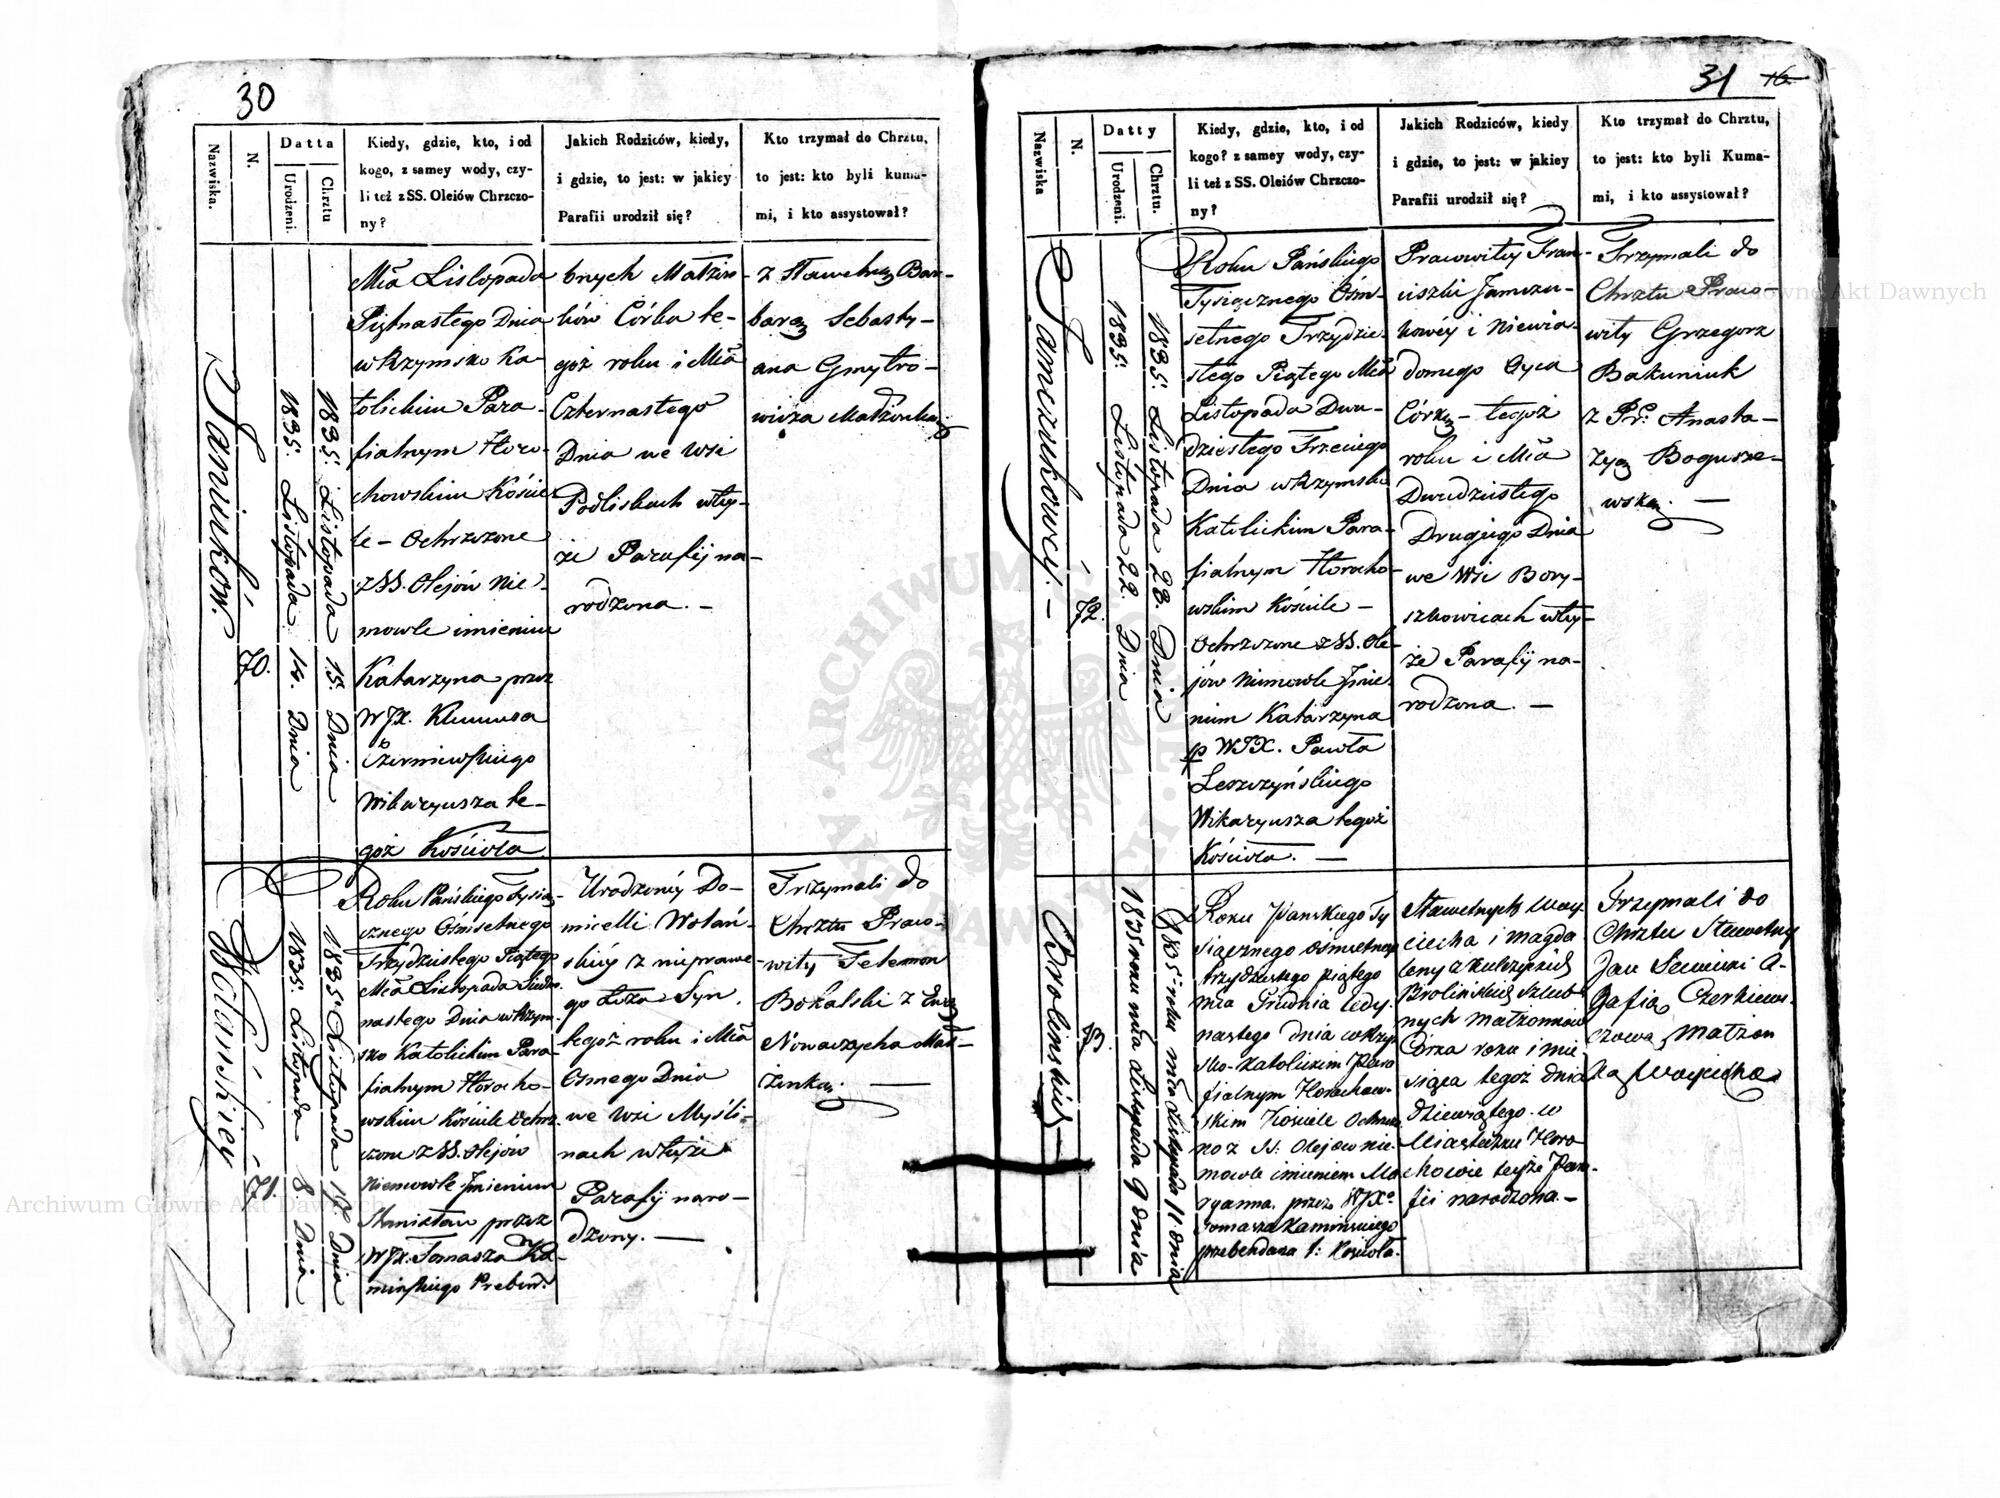 30
Nazwiska.
N.
Datta
Urodzeni.
Chrztu
Kiedy, gdzie, kto, i od
kogo, z samey wody, czy-
li też z SS. Oleiów Chrzczo-
ny?
Jakich Rodziców, kiedy,
i gdzie, to jest: w jakiey
Parafii urodził się?
Kto trzymał do Chrztu,
to jest: kto byli kuma-
mi, i kto assystował?
Janiuków.
70.
1835. Listopada. 14. Dnia
1835. Listopada 15. Dnia
Mca Listopada
Piętnastego Dnia
w Rzymsko Ka
tolickim Para-
fialnym Horo-
chowskim Koście-
le - Ochrzczone
z SS. Olejów Nie-
mowle imieniem
Katarzyna przez
WJX. Klemensa
Czerniewskiego
Wikaryusza te-
goż Kościoła
bnych Małżon-
ków Córka te-
goż roku i Mca
Czternastego
Dnia we Wsi
Podliskach w tey-
że Parafij na-
rodzona. -
z Sławetną Bar-
barą Sebasty-
ana Gmytro-
wicza Małżonką.
Wolańskiey
71.
1835. Listopada 8. Dnia
1835. Listopada 17. Dnia
Roku Pańskiego Tysią-
cznego Ośmsetnego
Trzydziestego Piątego
Mca Listopada Siedm-
nastego Dnia w Rzym-
sko Katolickim Para-
fialnym Horocho-
wskim Kościele Ochrz-
czone z SS. Olejów
Niemowle Jmieniem
Stanisław przez
WJX. Tomasza Ka-
mińskiego Prebend.
Urodzonéy Do-
micelli Wolań-
skiéy z nieprawe-
go Łoża Syn
tegoż roku i Mca
Osmego Dnia
we Wsi Myśli-
nach w teyże
Parafij naro-
dzony. -
Trzymali do
Chrztu Prawo-
wity Telemon
Bokalski z
Nowaczycha Mał-
żonką. -
31 16
Nazwiska
N.
Datty
Urodzeni.
Chrztu.
Kiedy, gdzie, kto, i od
kogo? z samey wody, czy-
li też z SS. Oleiów Chrzczo-
ny?
Jakich Rodziców, kiedy
i gdzie, to jest: w jakiey
Parafii urodził się?
Kto trzymał do Chrztu,
to jest: kto byli Kuma-
mi, i kto assystował?
Jamczukowey. -
72.
1835. Listopada 22. Dnia
1835. Listopada 23. Dnia
Roku Pańskiego
Tysiącznego Ośm-
setnego Trzydzie-
stego Piątego Mca
Listopada Dwu-
dziestego Trzeciego
Dnia w Rzymsko
Katolickim Para-
fialnym Horocho-
wskim Kościele -
Ochrzczone z SS. Ole-
jów Niemowle Jmie-
niem Katarzyna
p WJX. Pawła
Leszczyńskiego
Wikaryusza tegoż
Kościoła. -
Prawowitey Fran-
ciszki Jamczu-
kowéy i Niewia-
domego Oyca
Córka - tegoż
roku i Mca
Dwudziestego
Drugiego Dnia
we Wsi Bory-
szkowicach w tey-
że Parafij na-
rodzona. -
Trzymali do
Chrztu Prawo-
wity Grzegorz
Bakuniuk
z Pr. Anasta-
zyą Bogusze-
wską. -
Brolinskich -
73.
1835 roku mca Listopada 9 dnia
1835 roku mca Listopada 11 dnia
Roku Panskiego Ty
siącznego ośmsetnego
trzydziestego piątego
mca Grudnia Jedy
nastego dnia w Rzym
sko-Katolickim Para
fialnym Horochow-
skim Kościele Ochrzczo
no z SS. Olejów nie-
mowle imieniem Ma
ryanna. przez WJX
Tomasza Kaminskiego
prebendarza t: Kościoła.
Sławetnych Woy
ciecha i Magda
leny z Kulczyckich
Brolińskich Szlub-
nych małżonków
Córka roku i mie
siąca tegoż dnia
dziewiątego. w
Miasteczku Horo
chowie teyże Para-
fii narodzona. -
Trzymali do
Chrztu Sławetny
Jan Sawicki A-
gafią Czerkiews-
czową Małżon
ką Woyciecha
Archiwum Główne Akt Dawnych
Archiwum Główne Akt Dawnych